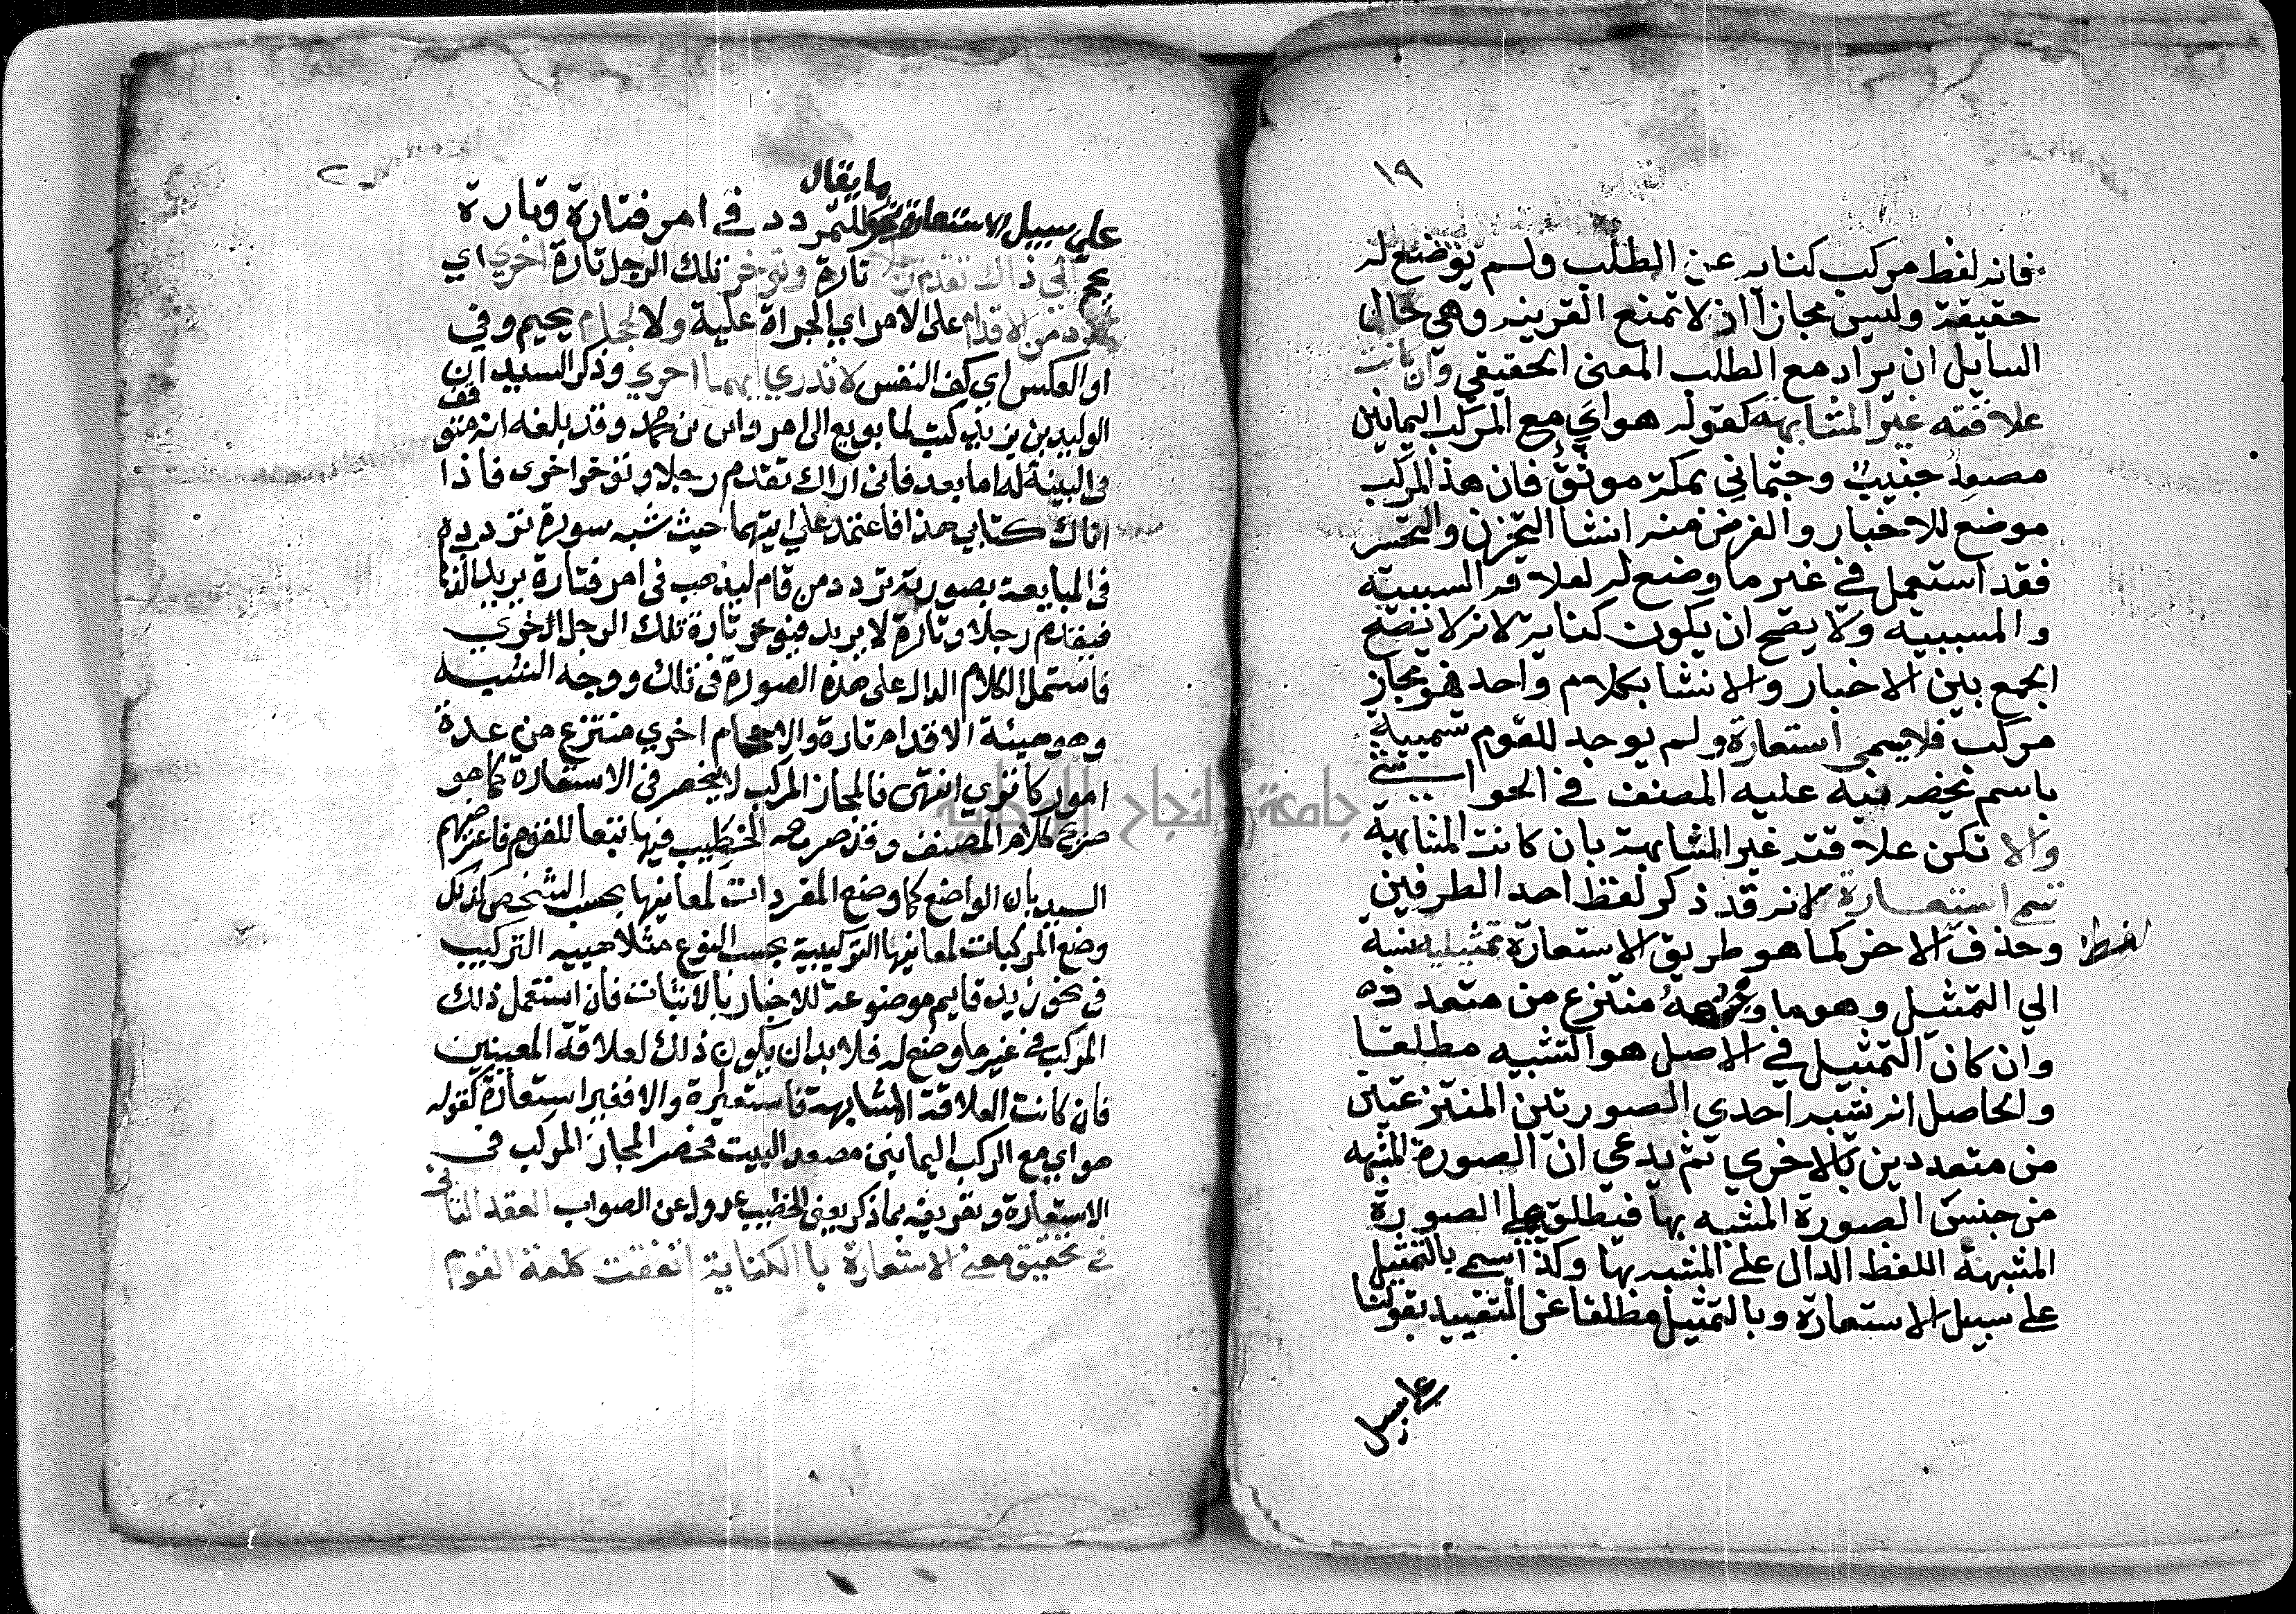 ١٩
فانه لفظ مركب كناية عن الطلب ولم يوضع له
حقيقة وليس مجازا اذ لا تمنع القرينه وهي حال
السايل ان يراد مع الطلب المعنى الحقيقي وان كانت
علاقته غير المشابهه كقوله هواي مع الركب اليمانين
مصعد جنيب وجثماني بمكة موثق فان هذا المركب
موضع للاخبار والغرض منه انشا التحزن والتحسر
فقد استعمل في غير ما وضع له لعلاقة السببية
والمسببيه ولا يصح ان يكون كناية لانه لا يصح
الجمع بين الاخبار والانشا بكلام واحد فهو مجاز
مركب فلا يسمى استعارة ولم يوجد للقوم تسمية
باسم يخصه نبه عليه المصنف في الحواشي
والا تكن علاقته غير المشابهة بان كانت المشابهة
تسمى استعارة لانه قد ذكر لفظ احد الطرفين
وحذف الاخر كما هو طريق الاستعارة تمثيلية نسبه
لفظ
الي التمثيل وهو ما وجهه منتزع من متعدد
وان كان التمثيل في الاصل هو التشبيه مطلقا
والحاصل انه شبه احدى الصورتين المنتزعتين
من متعددين بالاخري ثم يدعي ان الصورة المشبهه
من جنس الصورة المشبه بها فيطلق على الصورة
المشبهة اللفظ الدال على المشبه بها وكذا يسمى بالتمثيل
على سبيل الاستعارة وبالتمثيل مطلقا عن التقييد بقولنا
على سبيل
ما يقال
على سبيل الاستعارة نحو للمتردد في امر فتارة وتارة
اني اراك تقدم رجلا تارة وتوخر تلك الرجل تارة اخري اي
من الاقدام على الامر اي الجراة علية ولا
او العكس اي كف النفس لا تدري ايهما احري وذكر السيد ان
الوليد بن يزيد كتب لما بويع الى مروان بن محمد وقد بلغه انه متوقف
في البيعة له اما بعد فاني اراك تقدم رجلا وتوخر اخرى فاذا
اتاك كتابي هذا فاعتمد على ايتهما حيث شبه صورة تردده
في المبايعة بصورة تردد من قام ليذهب في امر فتارة يريد الذهاب
فيقدم رجلا وتارة لا يريد فيوخر تارة تلك الرجل الاخري
فاستعمل الكلام الدال على هذه الصورة في تلك ووجه الشبه
وهو هيئة الاقدام تارة والاحجام اخري منتزع من عدة
امور كما تري انتهى فالمجاز المركب لا ينحصر في الاستعارة كما هو
صريح كلام المصنف وقد صرح الخطيب فيها تبعا للقوم فاعترضهم
السيد بان الواضع كما وضع المفردات لمعانيها بحسب الشخص كذلك
وضع المركبات لمعانيها التركيبية بحسب النوع مثلا هيية التركيب
في نحو زيد قايم موضوعة للاخبار بالاثبات فان استعمل ذلك
المركب في غير ما وضع له فلا بد ان يكون ذلك لعلاقة المعنيين
فان كانت العلاقة المشابهة فاستعارة والا فغير استعارة كقوله
هواي مع الركب اليمانين مصعد البيت فحصر المجاز المركب في
الاستعارة وتعريفه بما ذكر يعني الخطيب عدول عن الصواب العقد الثاني
في تحقيق معنى الاستعارة با الكناية اتفقت كلمة القوم
جامعة النجاح الوطنية